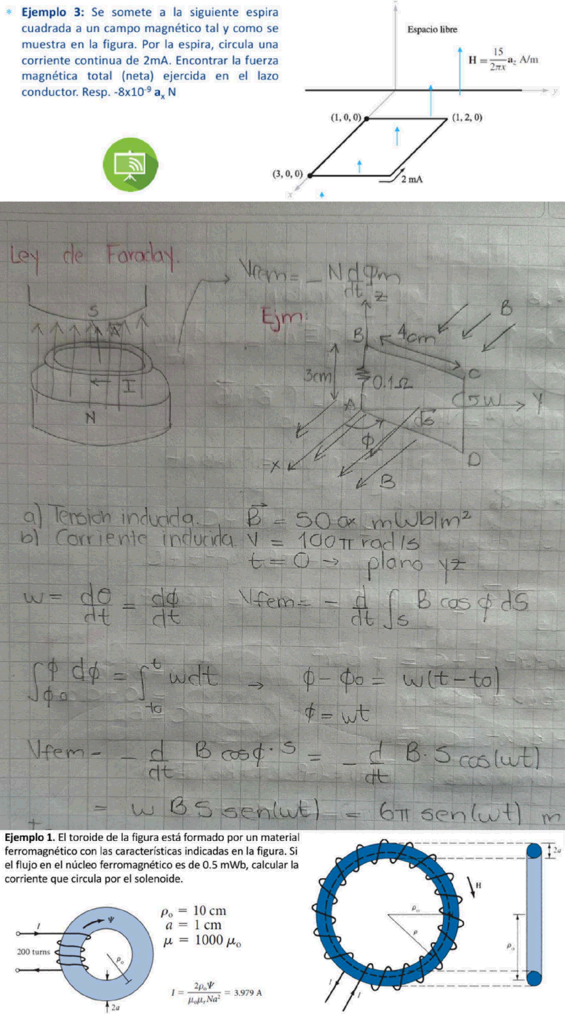 Ejemplo 3: Se somete a la siguiente espira
cuadrada a un campo magnético tal y como se
muestra en la figura. Por la espira, circula una
corriente continua de 2mA. Encontrar la fuerza
magnética total (neta) ejercida en el lazo
conductor. Resp. -8x10⁻⁹ aₓ N
z
Espacio libre
H = 15/2πx a_z A/m
y
(1, 0, 0)
(1, 2, 0)
(3, 0, 0)
2 mA
x
Ley de Faraday.
Vfem = - N dφm/dt
Ejm:
S
I
N
z
B
B
4cm
3cm
0.1Ω
C
A
w
Y
ds
φ
X
D
B
a) Tensión inducida. B = 50 ax mWb/m²
b) Corriente inducida V = 100π rad/s
t = 0 → plano yz
w = dθ/dt = dφ/dt Vfem = - d/dt ∫s B cos φ dS
∫φ φo dφ = ∫t to wdt → φ - φo = w(t-to)
φ = wt
Vfem = - d/dt B cosφ · S = - d/dt B·S cos(wt)
= w B S sen(wt) = 6π sen(wt) m
Ejemplo 1. El toroide de la figura está formado por un material
ferromagnético con las características indicadas en la figura. Si
el flujo en el núcleo ferromagnético es de 0.5 mWb, calcular la
corriente que circula por el solenoide.
ρₒ = 10 cm
a = 1 cm
μ = 1000 μₒ
I
Ψ
200 turns
ρₒ
2a
I = 2ρₒΨ/μₒμᵣNa² = 3.979 A
H
ρₒ
ρ
I
I
2a
ρₒ